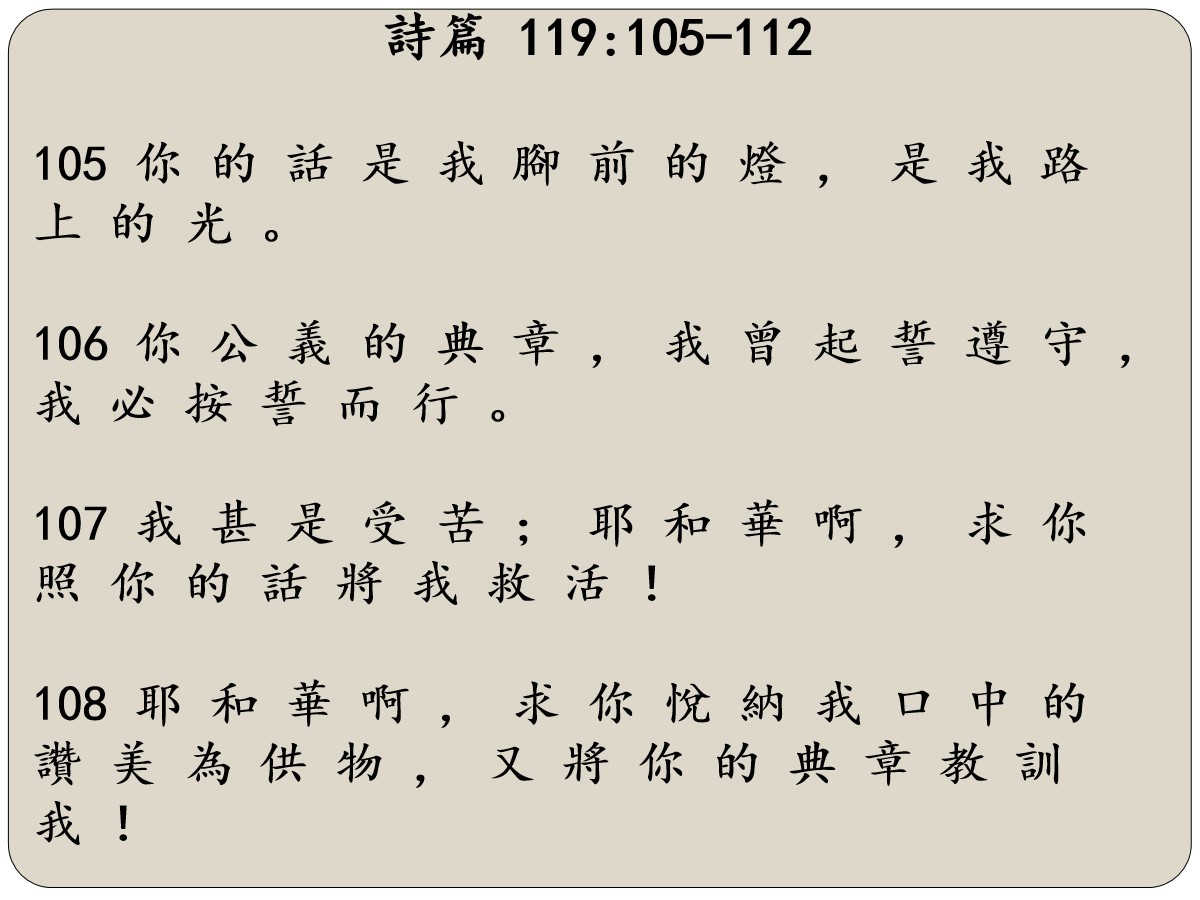 詩篇 119:105-112
105 你 的 話 是 我 腳 前 的 燈 , 是 我 路
上 的 光 。
106 你 公 義 的 典 章 , 我 曾 起 誓 遵 守 ,
我 必 按 誓 而 行 。
107 我 甚 是 受 苦 ; 耶 和 華 啊 , 求 你
照 你 的 話 將 我 救 活 !
108 耶 和 華 啊 , 求 你 悅 納 我 口 中 的
讚 美 為 供 物 , 又 將 你 的 典 章 教 訓
我 !